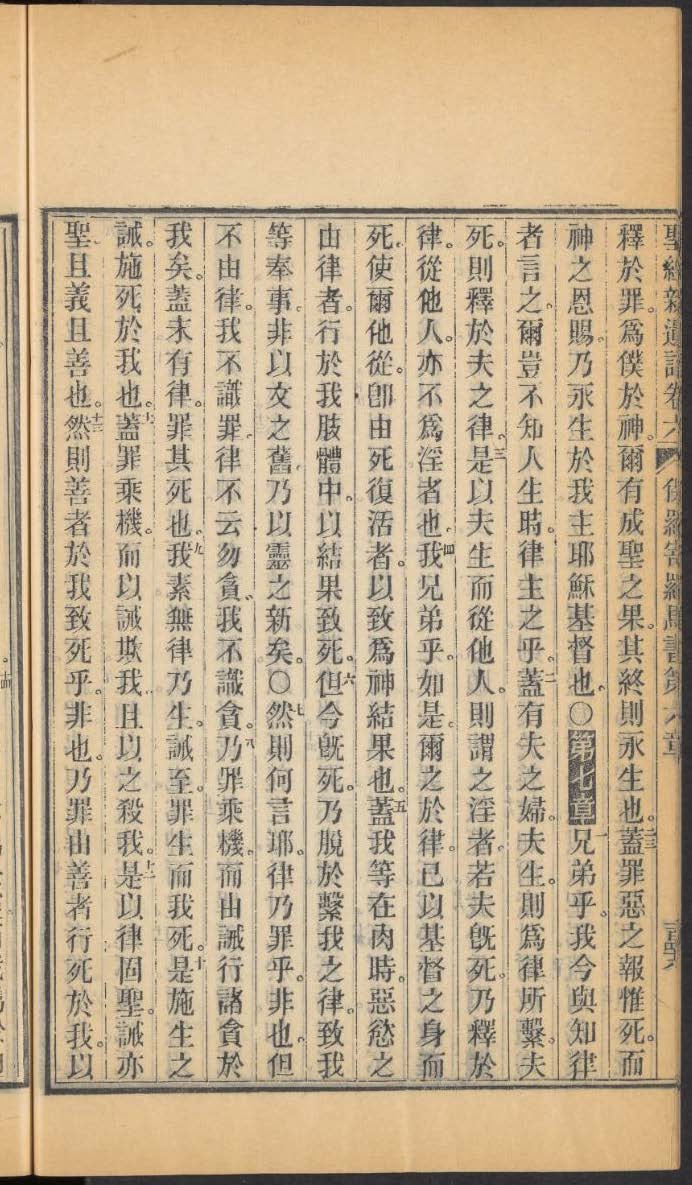 聖經新遺詔卷六 保羅寄羅馬書第六章
釋於罪爲僕於神。爾有成聖之果。其終則永生也。二三蓋罪惡之報惟死。而
神之恩賜。乃永生於我主耶穌基督也。〇第七章一兄弟乎。我今與知律
者言之。爾豈不知人生時。律主之乎。二蓋有夫之婦。夫生。則爲律所繫。夫
死。則釋於夫之律。三是以夫生而從他人。則謂之淫者。若夫旣死。乃釋於
律。從他人。亦不爲淫者也。四我兄弟乎。如是。爾之於律。已以基督之身而
死。使爾他從。卽由死復活者。以致爲神結果也。五蓋我等在肉時。惡慾之
由律者。行於我肢體中。以結果致死。六但今旣死。乃脫於繫我之律。致我
等奉事。非以文之舊。乃以靈之新矣。〇七然則何言耶。律乃罪乎。非也。但
不由律。我不識罪。律不云勿貪。我不識貪。八乃罪乘機。而由誡行諸貪於
我矣。蓋未有律。罪其死也。九我素無律乃生。誡至。罪生而我死。十是施生之
誡。施死於我也。十一蓋罪乘機。而以誡欺我。且以之殺我。十二是以律固聖。誡亦
聖且義且善也。十三然則善者於我致死乎。非也。乃罪由善者行死於我。以
十四